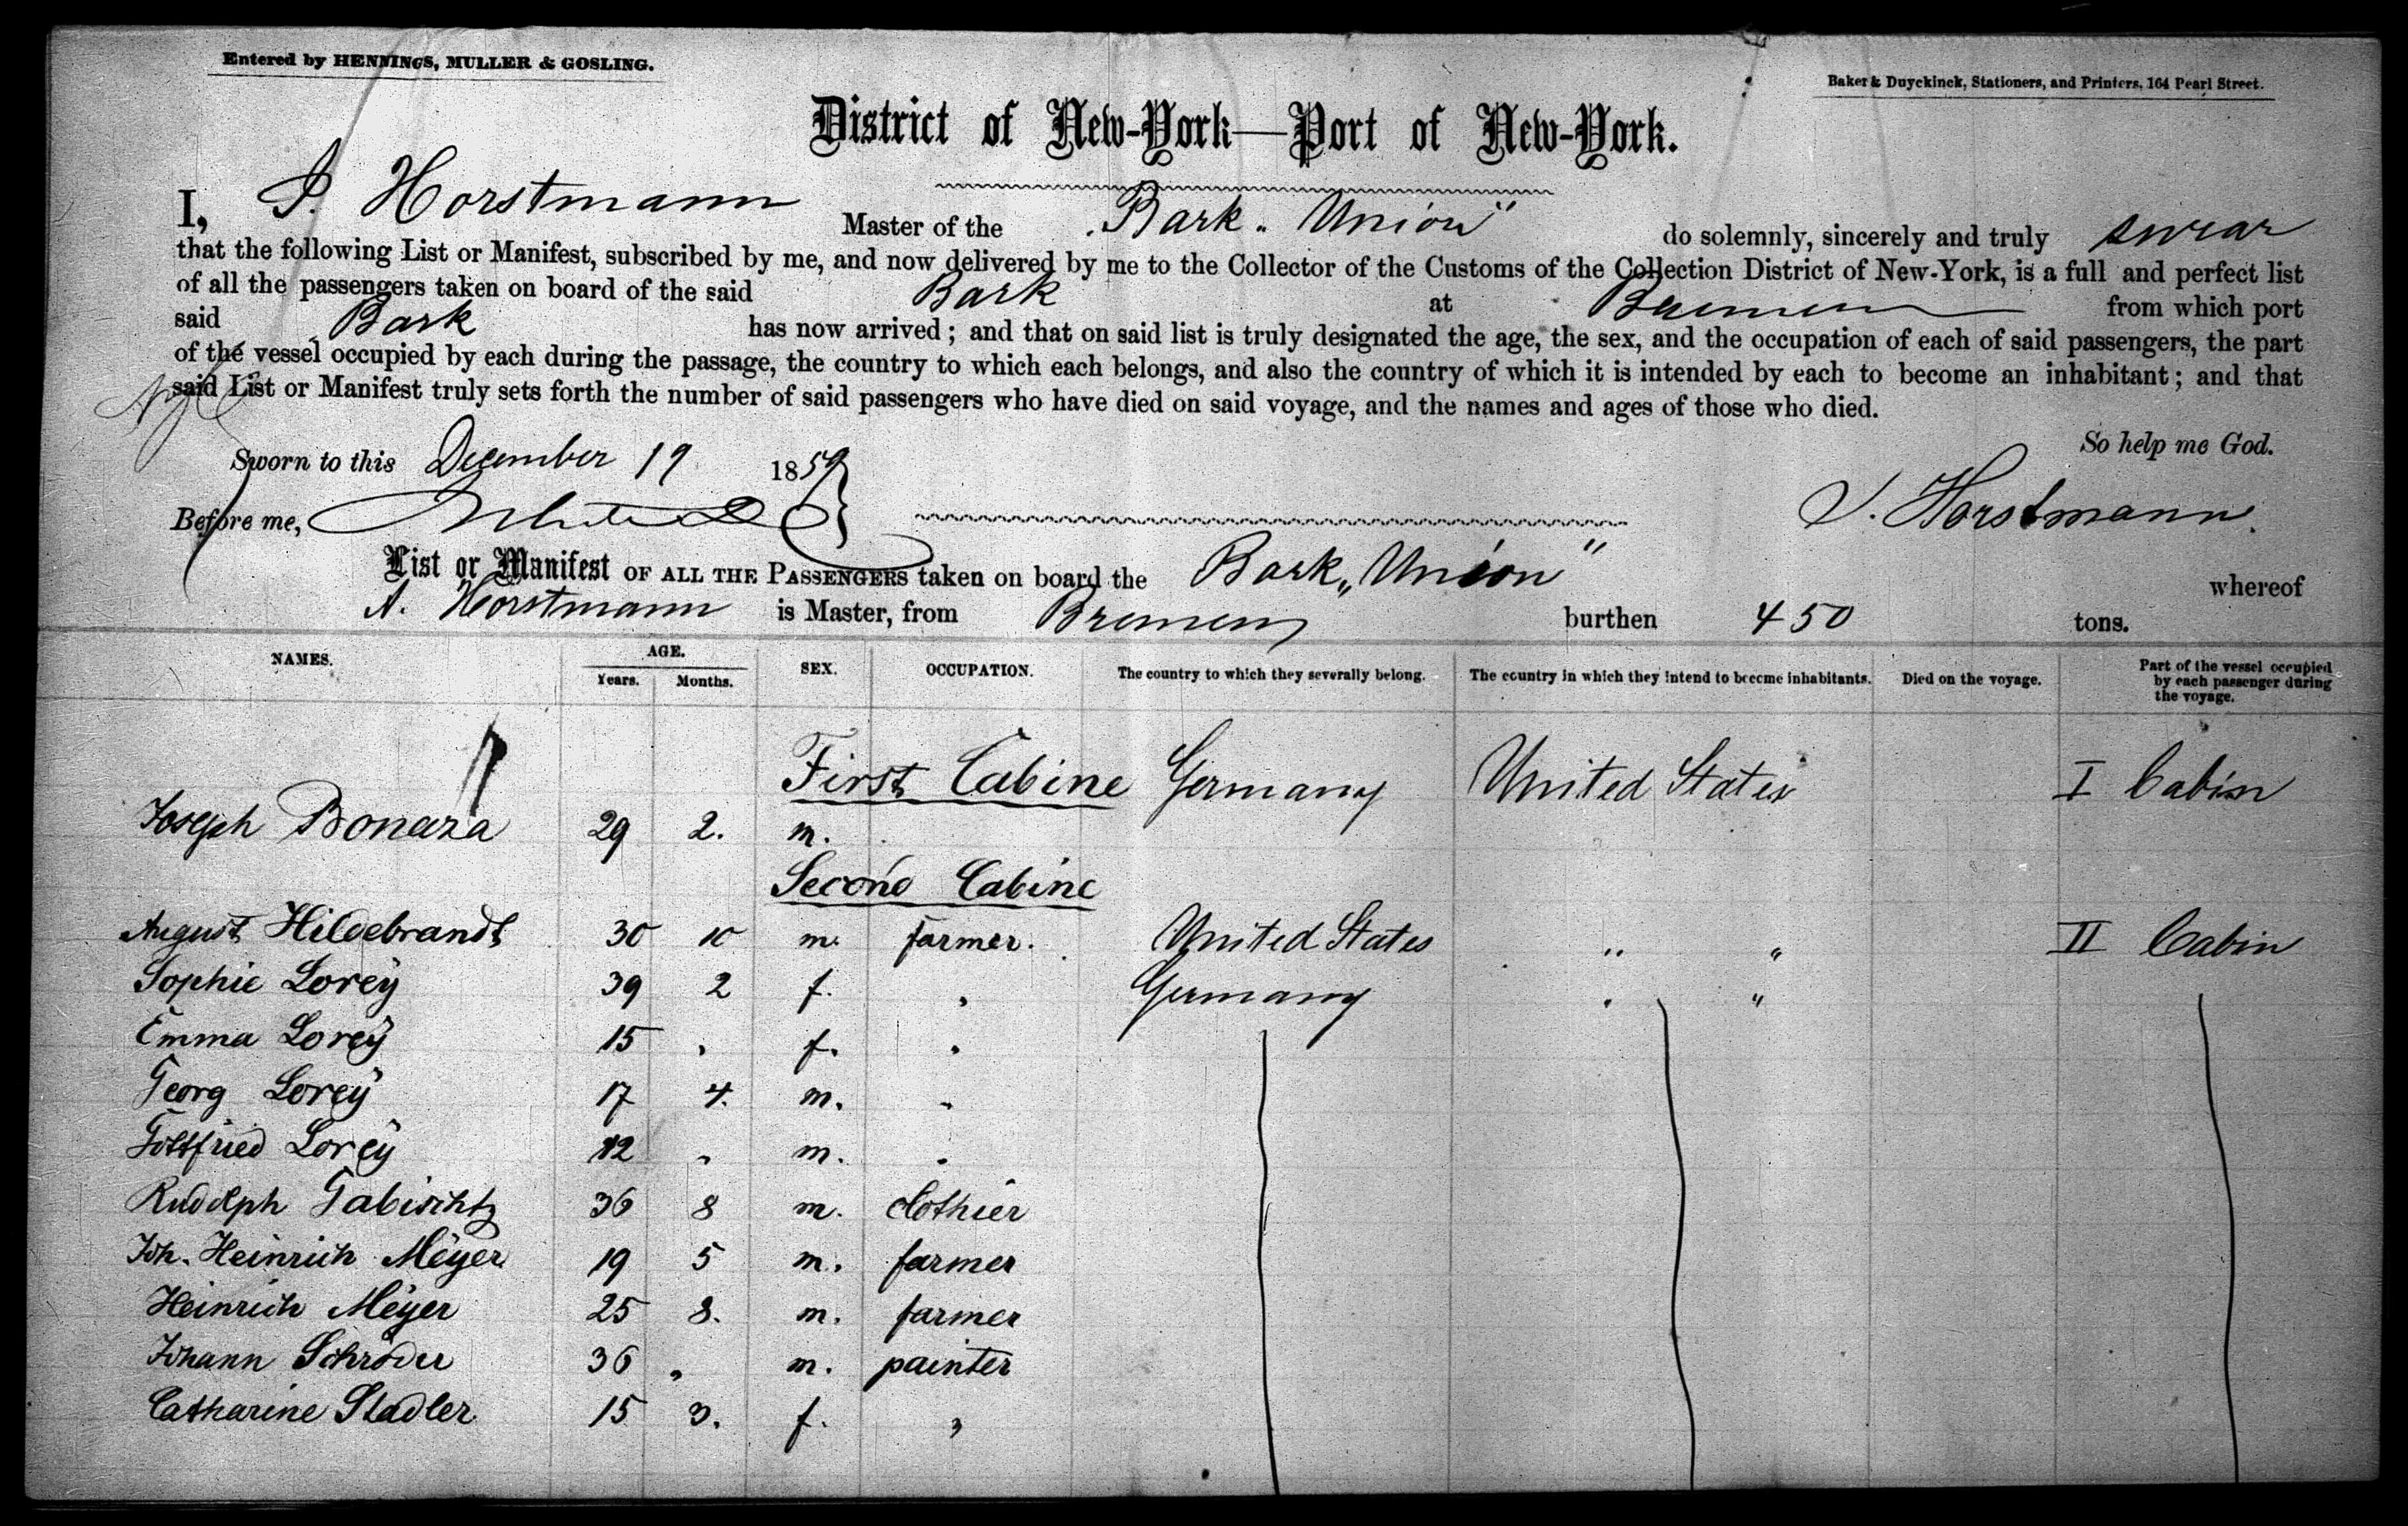 Entered by HENNINGS, MULLER & GOSLING.
Baker & Duyckinck, Stationers, and Printers, 164 Pearl Street.
District of New-York—Port of New-York.
I, Horstmann Master of the Bark „Union" do solemnly, sincerely and truly swear
that the following List or Manifest, subscribed by me, and now delivered by me to the Collector of the Customs of the Collection District of New-York, is a full and perfect list
of all the passengers taken on board of the said Bark at Bremen from which port
said Bark has now arrived; and that on said list is truly designated the age, the sex, and the occupation of each of said passengers, the part
of the vessel occupied by each during the passage, the country to which each belongs, and also the country of which it is intended by each to become an inhabitant; and that
said List or Manifest truly sets forth the number of said passengers who have died on said voyage, and the names and ages of those who died.
So help me God.
Sworn to this December 19 1859
Before me, Horstmann.
List or Manifest OF ALL THE PASSENGERS taken on board the Bark „Union" whereof
Horstmann is Master, from Bremen burthen 450 tons.
NAMES. AGE. Years. Months. SEX. OCCUPATION. The country to which they severally belong. The country in which they intend to become inhabitants. Died on the voyage. Part of the vessel occupied by each passenger during the voyage.
First Cabine Germany United States I Cabin
Joseph Bonaza 29 2. m.
Second Cabine
August Hildebrandt 30 10 m. farmer. United States " " II Cabin
Sophie Lorey 39 2 f. " Germany " "
Emma Lorey 15 " f. "
Georg Lorey 17 4. m. "
Gottfried Lorey 12 " m. "
Rudolph Gabischtz 36 8 m. clothier
Joh. Heinrich Meyer 19 5 m. farmer
Heinrich Meyer 25 8. m. farmer
Johann Schröder 36 " m. painter
Catharine Stadler 15 3. f. "